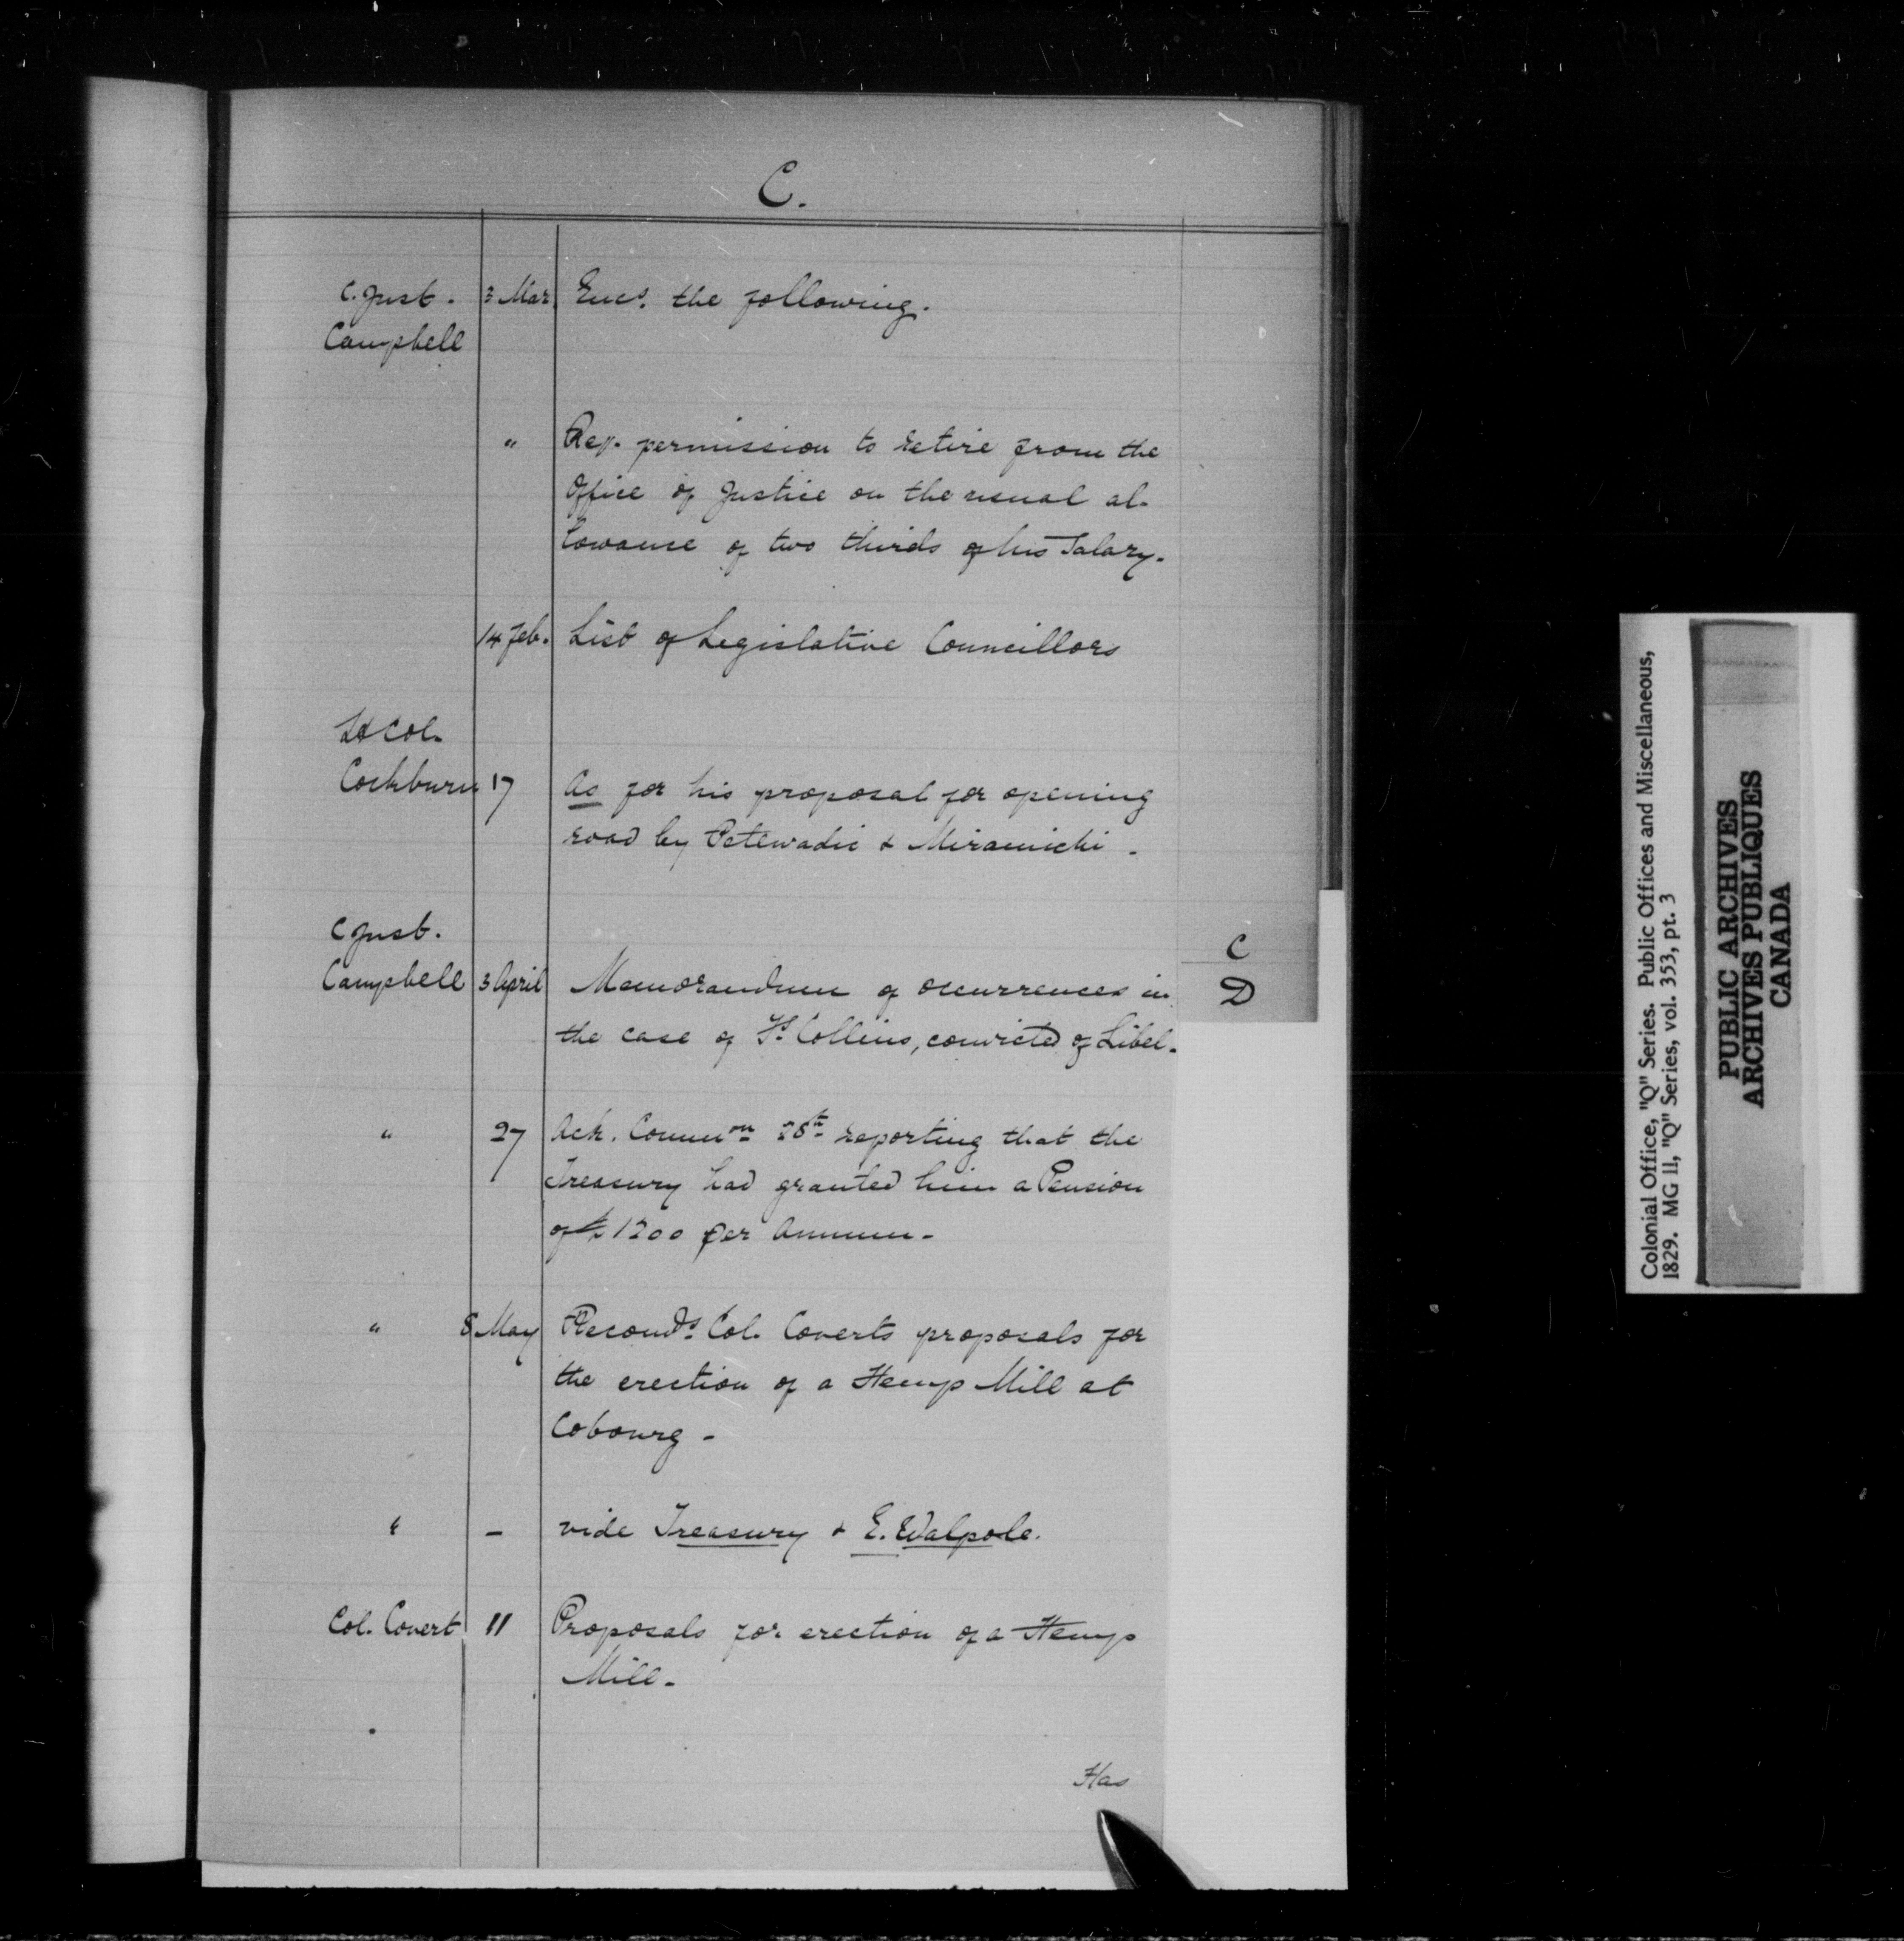 C.
C. Just. 3 Mar. Encs. the following.
Campbell
" Req. permission to retire from the
Office of Justice on the usual al-
lowance of two thirds of his Salary.
14 Feb. List of Legislative Councillors
Lt Col.
Cockburn 17 As for his proposal for opening
road by Petewadic & Miramichi -
C Just.
Campbell 3 April Memorandum of occurrences in
the case of Fs. Collins, convicted of Libel.
" 27 Ack. Commn 28th reporting that the
Treasury had granted him a Pension
of £1200 per Annum -
" 8 May Recomds. Col. Coverts proposals for
the erection of a Hemp Mill at
Cobourg -
" - vide Treasury & E. Walpole.
Col. Covert 11 Proposals for erection of a Hemp
Mill -
Has
C
D
Colonial Office, "Q" Series. Public Offices and Miscellaneous,
1829. MG 11, "Q" Series, vol. 353, pt. 3
PUBLIC ARCHIVES
ARCHIVES PUBLIQUES
CANADA